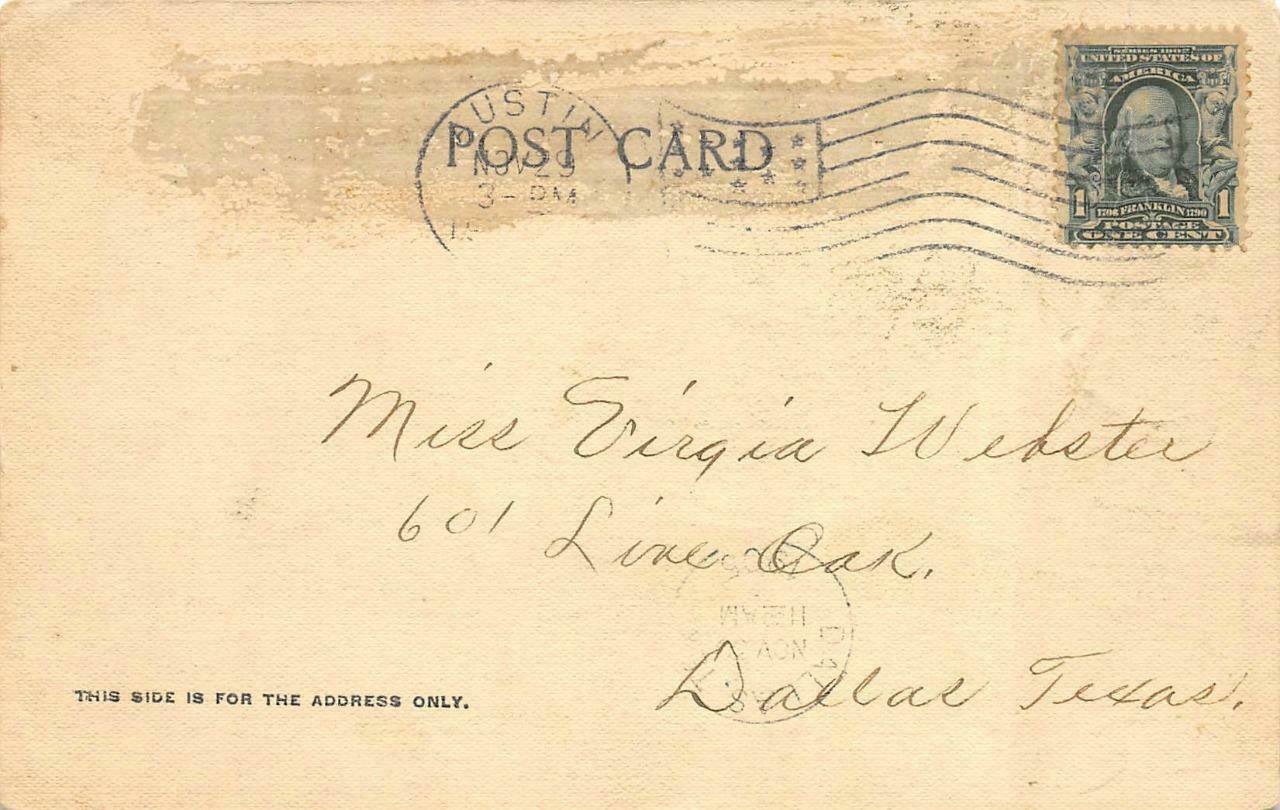 SERIES 1902
UNITED STATES OF
AMERICA
1 1706 FRANKLIN 1790 1
POSTAGE
ONE CENT
AUSTIN
NOV 29
3- PM
POST CARD
Miss Virgia Webster
601 Live Oak.
Dallas Texas.
DALLAS
NOV
AM
THIS SIDE IS FOR THE ADDRESS ONLY.